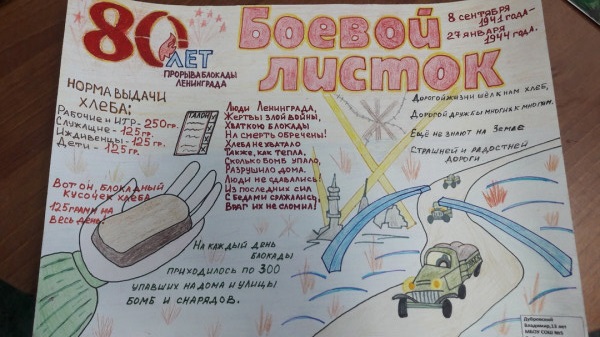 80
ЛЕТ
ПРОРЫВА БЛОКАДЫ
ЛЕНИНГРАДА
Боевой
листок
8 сентября
1941 года-
27 января
1944 год.
НОРМА ВЫДАЧИ
ХЛЕБА:
Рабочие и ИТР - 250 гр.
Служащие - 125 гр.
Иждивенцы - 125 гр.
Дети - 125 гр.
ТАЛОН
Люди Ленинграда,
Жертвы злой войны,
Хваткою блокады
На смерть обречены!
Хлеба не хватало
Также, как тепла,
Сколько бомб упало,
Разрушило дома.
Люди не сдавались!
Из последних сил
С бедами сражались,
Враг их не сломил!
Дорогой жизни шёл к нам хлеб,
Дорогой дружбы многих к многим.
Ещё не знают на земле
Страшней и радостней
дороги
Вот он, блокадный
кусочек хлеба
125 грамм на
весь день.
На каждый день
блокады
приходилось по 300
упавших на дома и улицы
бомб и снарядов.
Дубровский
Владимир, 15 лет
МБОУ СОШ №5